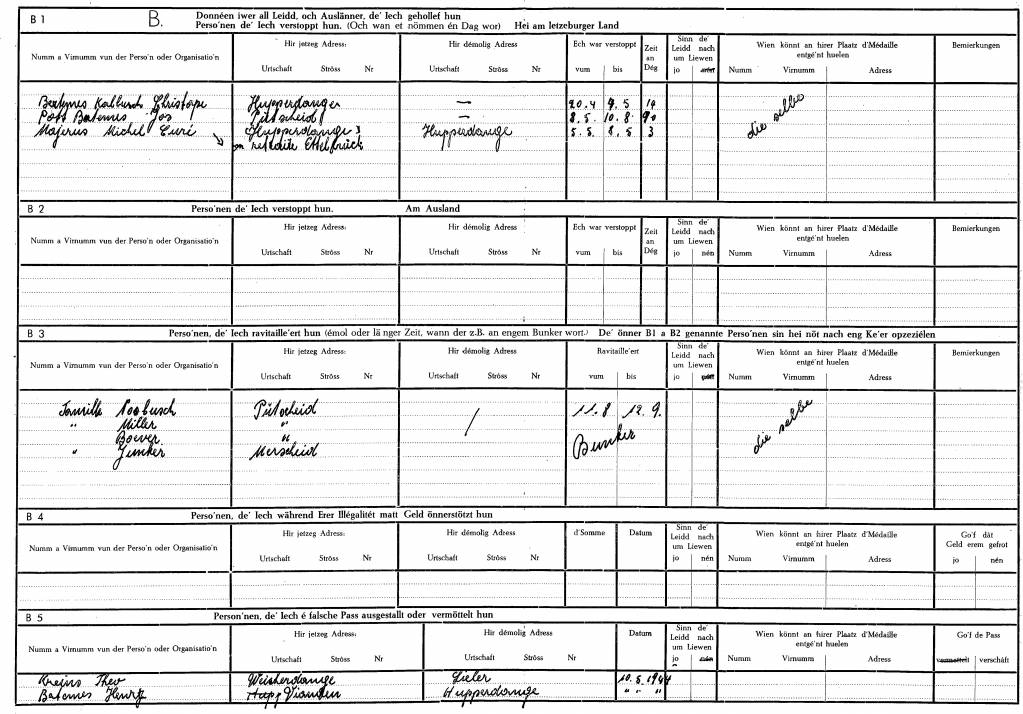 B 1 B. Donnéen iwer all Leidd, och Auslänner, de' Iech gehollef hun
Perso'nen de' Iech verstoppt hun. (Och wan et nömmen én Dag wor) Hei am letzeburger Land
Numm a Virnumm vun der Perso'n oder Organisatio'n Hir jetzeg Adress: Hir démolig Adress Ech war verstoppt Zeit an Dég Sinn de' Leidd nach um Liewen Wien könnt an hirer Plaatz d'Médaille entgé'nt huelen Bemierkungen
Urtschaft Ströss Nr Urtschaft Ströss Nr vum bis jo nén Numm Virnumm Adress
Kalbusch Christophe Hupperdange — 20.4 9.5 19 die selbe
Post Batemes Jos Pütscheid — 8.5. 10.8. 90
Majerus Michel Curé Hupperdange Hupperdange 5.5. 8.5 3
en retraite Ettelbruck
B 2 Perso'nen de' Iech verstoppt hun. Am Ausland
Numm a Virnumm vun der Perso'n oder Organisatio'n Hir jetzeg Adress: Hir démolig Adress Ech war verstoppt Zeit an Dég Sinn de' Leidd nach um Liewen Wien könnt an hirer Plaatz d'Médaille entgé'nt huelen Bemierkungen
Urtschaft Ströss Nr Urtschaft Ströss Nr vum bis jo nén Numm Virnumm Adress
B 3 Perso'nen, de' Iech ravitaille'ert hun (émol oder länger Zeit, wann der z.B. an engem Bunker wort.) De' önner B1 a B2 genannte Perso'nen sin hei nöt nach eng Ke'er opzeziélen
Numm a Virnumm vun der Perso'n oder Organisatio'n Hir jetzeg Adress: Hir démolig Adress Ravitaille'ert Sinn de' Leidd nach um Liewen Wien könnt an hirer Plaatz d'Médaille entgé'nt huelen Bemierkungen
Urtschaft Ströss Nr Urtschaft Ströss Nr vum bis jo nén Numm Virnumm Adress
Familie Pütscheid / 11.8 12.9. die selbe
" Miller "
Boever " Bunker
" Junker Merscheid
B 4 Perso'nen, de' Iech während Erer Illégalitét matt Geld önnerstözt hun
Numm a Virnumm vun der Perso'n oder Organisatio'n Hir jetzeg Adress: Hir démolig Adress d'Somme Datum Sinn de' Leidd nach um Liewen Wien könnt an hirer Plaatz d'Médaille entgé'nt huelen Go'f dât Geld erem gefrot
Urtschaft Ströss Nr Urtschaft Ströss Nr jo nén Numm Virnumm Adress jo nén
B 5 Person'nen, de' Iech é falsche Pass ausgestallt oder vermöttelt hun
Numm a Virnumm vun der Perso'n oder Organisatio'n Hir jetzeg Adress: Hir démolig Adress Datum Sinn de' Leidd nach um Liewen Wien könnt an hirer Plaatz d'Médaille entgé'nt huelen Go'f de Pass
Urtschaft Ströss Nr Urtschaft Ströss Nr jo nén Numm Virnumm Adress vermöttelt verschâft
Kreins Theo Weisterdange Lieler 10.5.1944
Batemes Vianden Hupperdange " " "